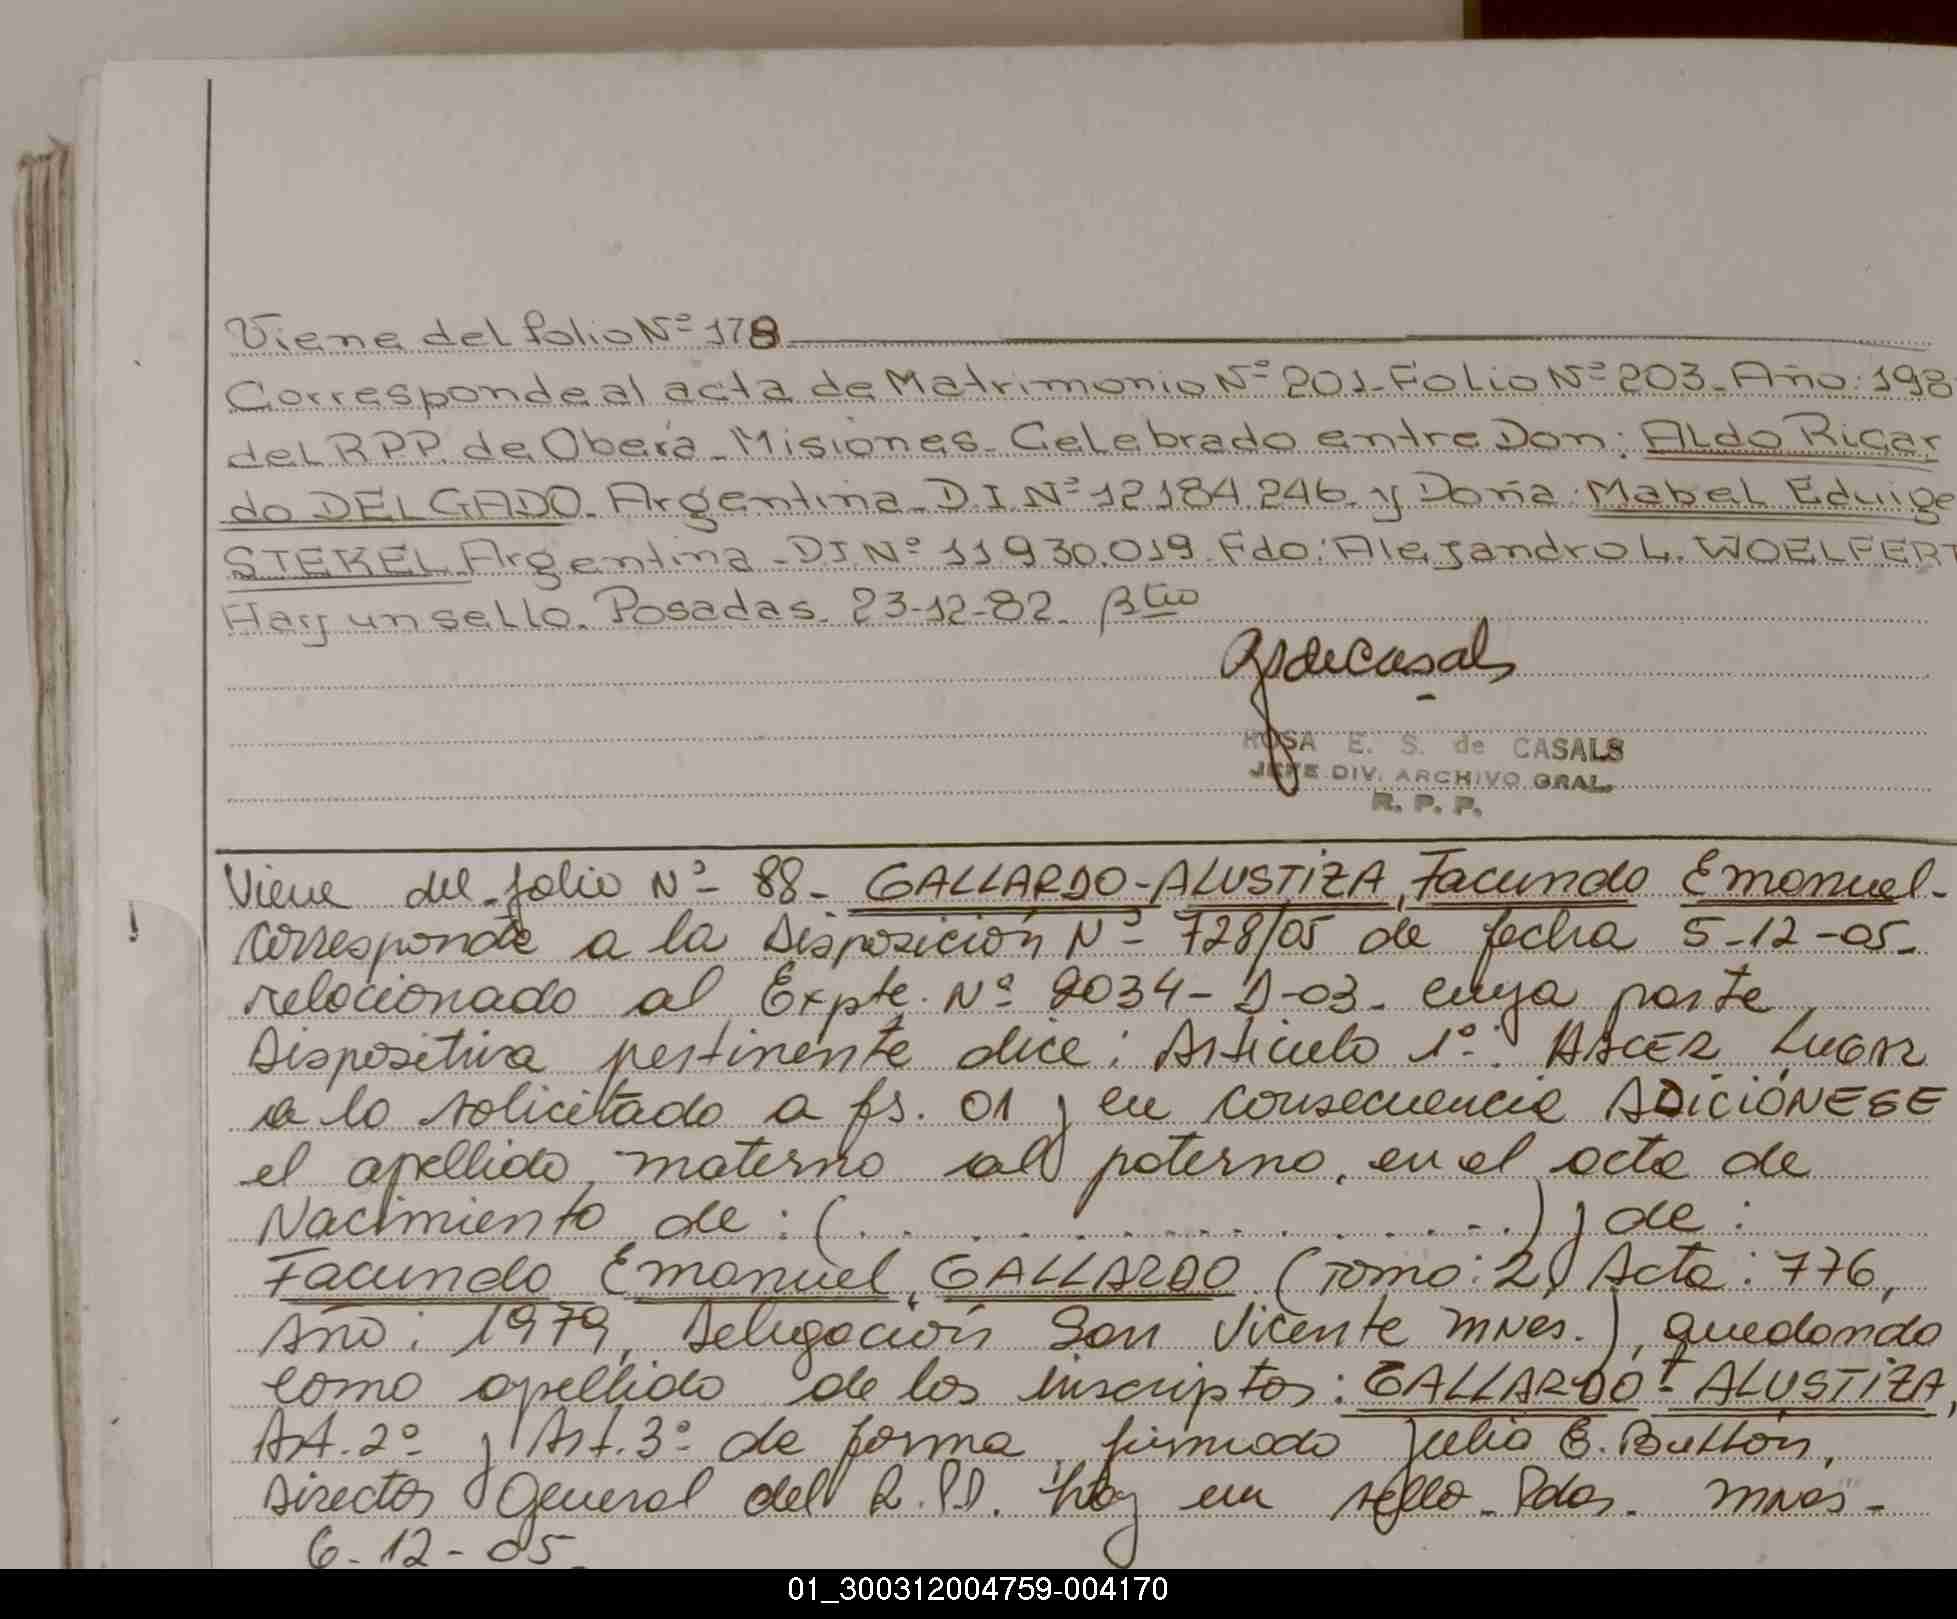 Viene del folio Nº 178
Corresponde al acta de Matrimonio Nº 201. Folio Nº 203. Año: 198
del RPP. de Oberá. Misiones. Celebrado entre Don: ALdo Ricar
do DELGADO. Argentina. D.I. Nº 12184.246. y Doña: Mabel Eduige
STEKEL Argentina. DI. Nº 11930.019. Fdo: Alejandro L. WOELFERT
Hay un sello. Posadas. 23-12-82.
ROSA E. S. de CASALS
JEFE DIV. ARCHIVO GRAL.
R. P. P.
Viene del folio Nº 88- GALLARDO-ALUSTIZA, Facundo Emanuel-
Corresponde a la Disposición Nº 728/05 de fecha 5-12-05-
relacionado al Expte. Nº 9034-D-03- cuya parte
Dispositiva pertinente dice: Articulo 1º: HACER LUGAR
a lo solicitado a fs. 01 y en consecuencia ADICIÓNESE
el apellido materno al paterno, en el acta de
Nacimiento de: (..................) y de:
Facundo Emanuel, GALLARDO (Tomo: 2, Acta: 776,
Año: 1979, Delegación San Vicente Mnes.), quedando
como apellido de los inscriptos: GALLARDO - ALUSTIZA,
Art. 2º y Art. 3º de forma, firmado Julio E. Buttón,
Director General del R.P.P. hay un sello- Pdas. Mnes-
6-12-05-
01_300312004759-004170